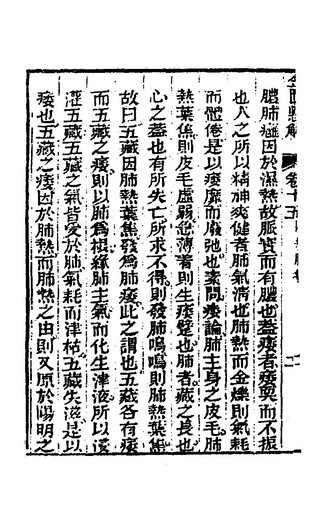 金匱懸解 卷十五
膿肺癰因於濕熱故脈實而有膿也蓋痿者痿耎而不振
也人之所以精神爽健者肺氣清也肺熱而金爍則氣耗
而體倦是以痿靡而廢弛也素問痿論肺主身之皮毛肺
熱葉焦則皮毛虛弱急薄著則生痿躄也肺者藏之長也
心之蓋也有所失亡所求不得則發肺鳴鳴則肺熱葉焦
故曰五藏因肺熱葉焦發爲肺痿此之謂也五藏各有痿
而五藏之痿則以肺爲根緣肺主氣而化生津液所以浸
灌五藏五藏之氣皆受於肺氣耗而津枯五藏失滋是以
痿也五藏之痿因於肺熱而肺熱之由則又原於陽明之